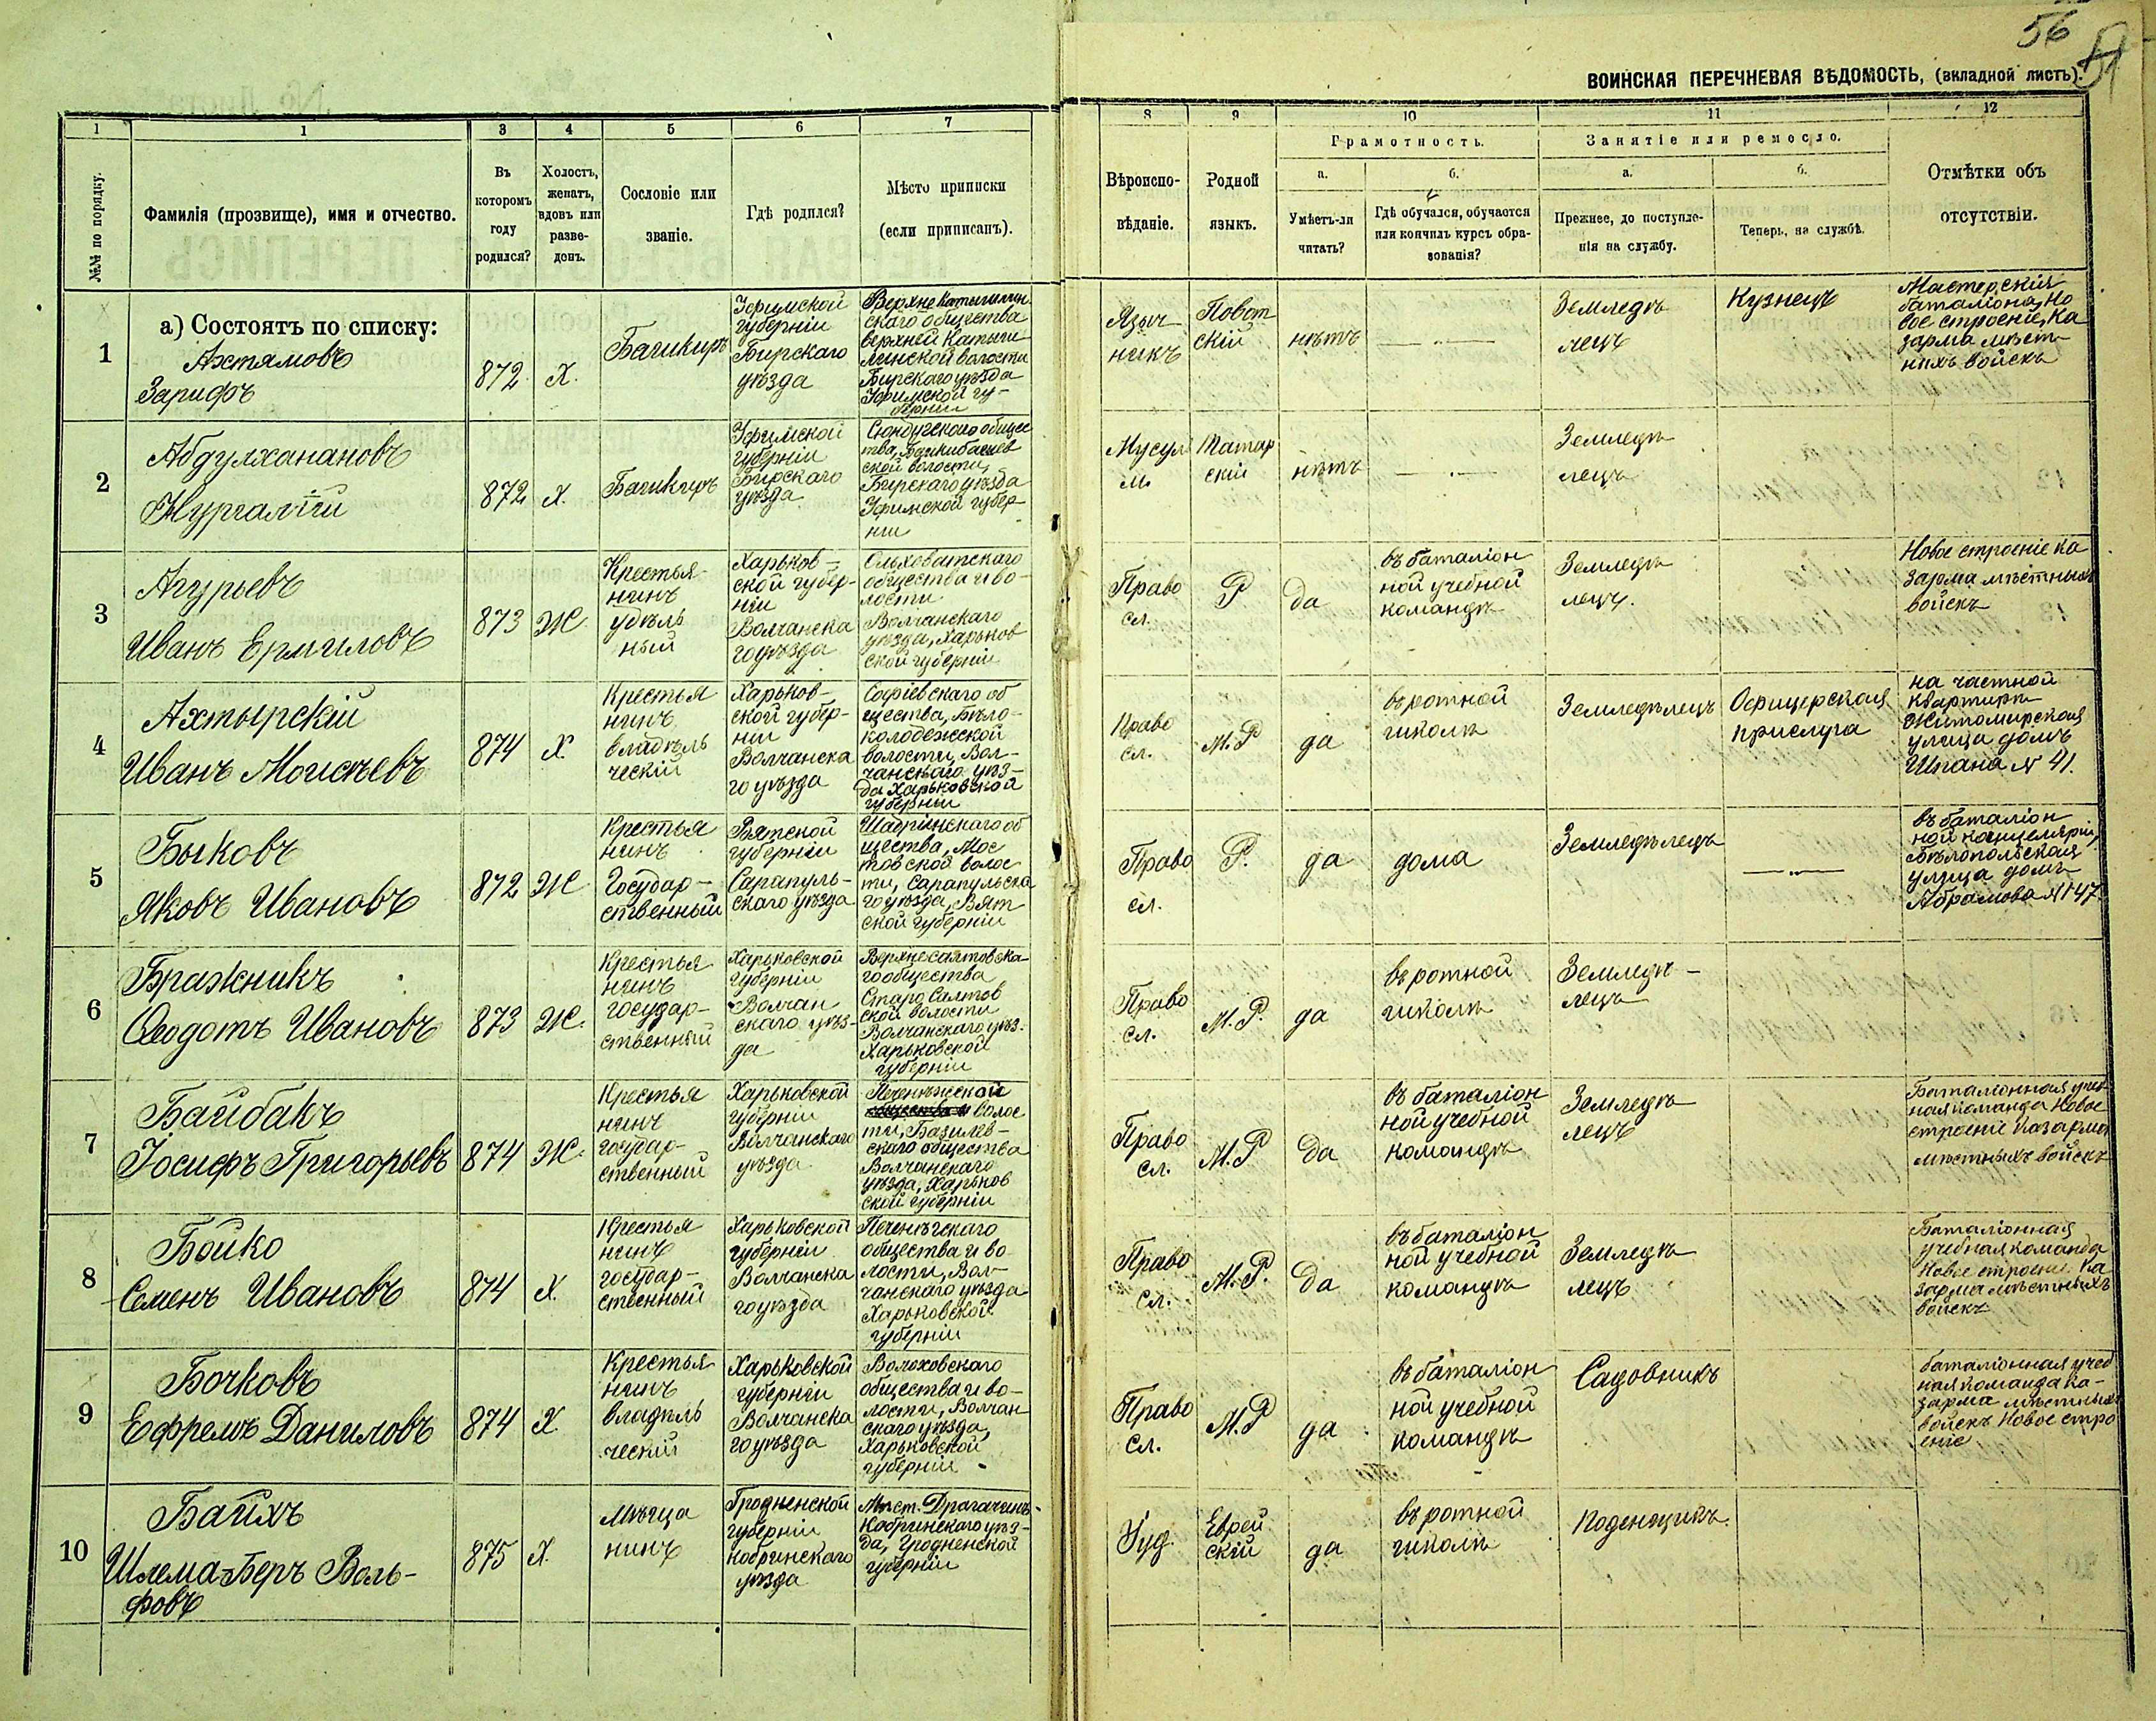 56
ВОИНСКАЯ ПЕРЕЧНЕВАЯ ВѢДОМОСТЬ, (вкладной листъ).
1 1 3 4 5 6 7 8 9 10 11 12
№№ по порядку.
Фамилія (прозвище), имя и отчество.
Въ
которомъ
году
родился?
Холостъ,
женатъ,
вдовъ или
разве-
денъ.
Сословіе или
званіе.
Гдѣ родился?
Мѣсто приписки
(если приписанъ).
Вѣроиспо-
вѣданіе.
Родной
языкъ.
Грамотность.
а.
Умѣетъ-ли
читать?
б.
Гдѣ обучался, обучается
или кончилъ курсъ обра-
зованія?
Занятіе или ремесло.
а.
Прежнее, до поступле-
нія на службу.
б.
Теперь, на службѣ.
Отмѣтки объ
отсутствіи.
1
а) Состоятъ по списку:
Ахтямовъ
Зарифъ
872
Х.
Башкиръ
Уфимской
губерніи
Бирскаго
уѣзда
скаго общества
волости
Бирскаго уѣзда
Уфимской гу-
берніи
Языч
никъ
скій
нѣтъ
Земледѣ
лецъ
Кузнецъ
Мастерскія
баталіона, Но
вое строеніе, Ка
зарма мѣст-
ныхъ войскъ
2
Абдулханановъ
Нургалій
872
Х.
Башкиръ
Уфимской
губерніи
Бирскаго
уѣзда
общес
тва,
ской волости,
Бирскаго уѣзда
Уфимской губер-
ніи
Мусул
м.
Татар
скій
нѣтъ
Земледѣ
лецъ
3
Агурьевъ
Иванъ Ермиловъ
873
Ж
Крестья-
нинъ
удѣль
ный
Харьков-
ской губер-
ніи
Волчанска
го уѣзда
Ольховатскаго
общества и во-
лости
Волчанскаго
уѣзда, Харьков
ской губерніи
Право
сл.
Р
Да
въ баталіон
ной учебной
командѣ
Земледѣ
лецъ.
Новое строеніе ка
зарма мѣстныхъ
войскъ
4
Ахтырскій
Иванъ Моисѣевъ
874
Х.
Крестья
нинъ
владѣль
ческій
Харьков-
ской губер-
ніи
Волчанска
го уѣзда
Софіевскаго об
щества, Бѣло-
колодежской
волости, Вол-
чанскаго уѣз-
да Харьковской
губерніи
Право
сл.
М.Р
да
въ ротной
школѣ
Земледѣлецъ
Офицерская
прислуга
на частной
квартирѣ
Житомирская
улица домъ
Шпана № 41.
5
Быковъ
Яковъ Ивановъ
872
Ж
Крестья
нинъ
Государ-
ственный
Вятской
губерніи
Сарапуль-
скаго уѣзда
об
щества, Мос
товской волос
ти, Сарапульска
го уѣзда, Вят
ской губерніи
Право
сл.
Р.
да
дома
Земледѣлецъ
въ баталіон
ной канцеляріи,
Бѣлопольская
улица домъ
Абрамова № 147
6
Бражникъ
Ѳеодотъ Ивановъ
873
Ж.
Крестья
нинъ
государ-
ственный
Харьковской
губерніи
Волчан
скаго уѣз-
да
Верхнесалтовска-
го общества
Старо Салтов
ской волости
Волчанскаго уѣз.
Харьковской
губерніи
Право
сл.
М.Р.
да
въ ротной
школѣ
Земледѣ-
лецъ
7
Байбакъ
Іосифъ Григорьевъ
874
Ж.
Крестья
нинъ
государ-
ственный
Харьковской
губерніи
Волчанскаго
уѣзда
Печенѣжской
волос
ти, Базилев-
скаго общества
Волчанскаго
уѣзда, Харьков
ской губерніи
Право
сл.
М.Р
Да
въ баталіон
ной учебной
командѣ
Земледѣ
лецъ
Баталіонная учеб
ная команда Новое
строеніе казарма
мѣстныхъ войскъ
8
Бойко
Семенъ Ивановъ
874
Х.
Крестья
нинъ
государ-
ственный
Харьковской
губерніи
Волчанска
го уѣзда
Печенѣгскаго
общества и во
лости, Вол-
чанскаго уѣзда
Харьковской
губерніи
Право
сл.
М.Р.
Да
въ баталіон
ной учебной
командѣ
Земледѣ
лецъ
Баталіонная
учебная команда
Новое строеніе Ка
зарма мѣстныхъ
войскъ
9
Бочковъ
Ефремъ Даниловъ
874
Х
Крестья
нинъ
владѣль
ческій
Харьковской
губерніи
Волчанска
го уѣзда
Волоховскаго
общества и во-
лости, Волчан
скаго уѣзда,
Харьковской
губерніи
Право
Сл.
М.Р
да
въ баталіон
ной учебной
командѣ
Садовникъ
баталіонная учеб
ная команда ка-
зарма мѣстныхъ
войскъ Новое стро
еніе
10
Байхъ
Шлема-Беръ Воль-
фовъ
875
Х.
Мѣща
нинъ
Гродненской
губерніи
Кобринскаго
уѣзда
Мѣст. Драгачинъ
Кобринскаго уѣз-
да, Гродненской
губерніи
Іуд.
Еврей
скій
да
въ ротной
школѣ
Поденщикъ.